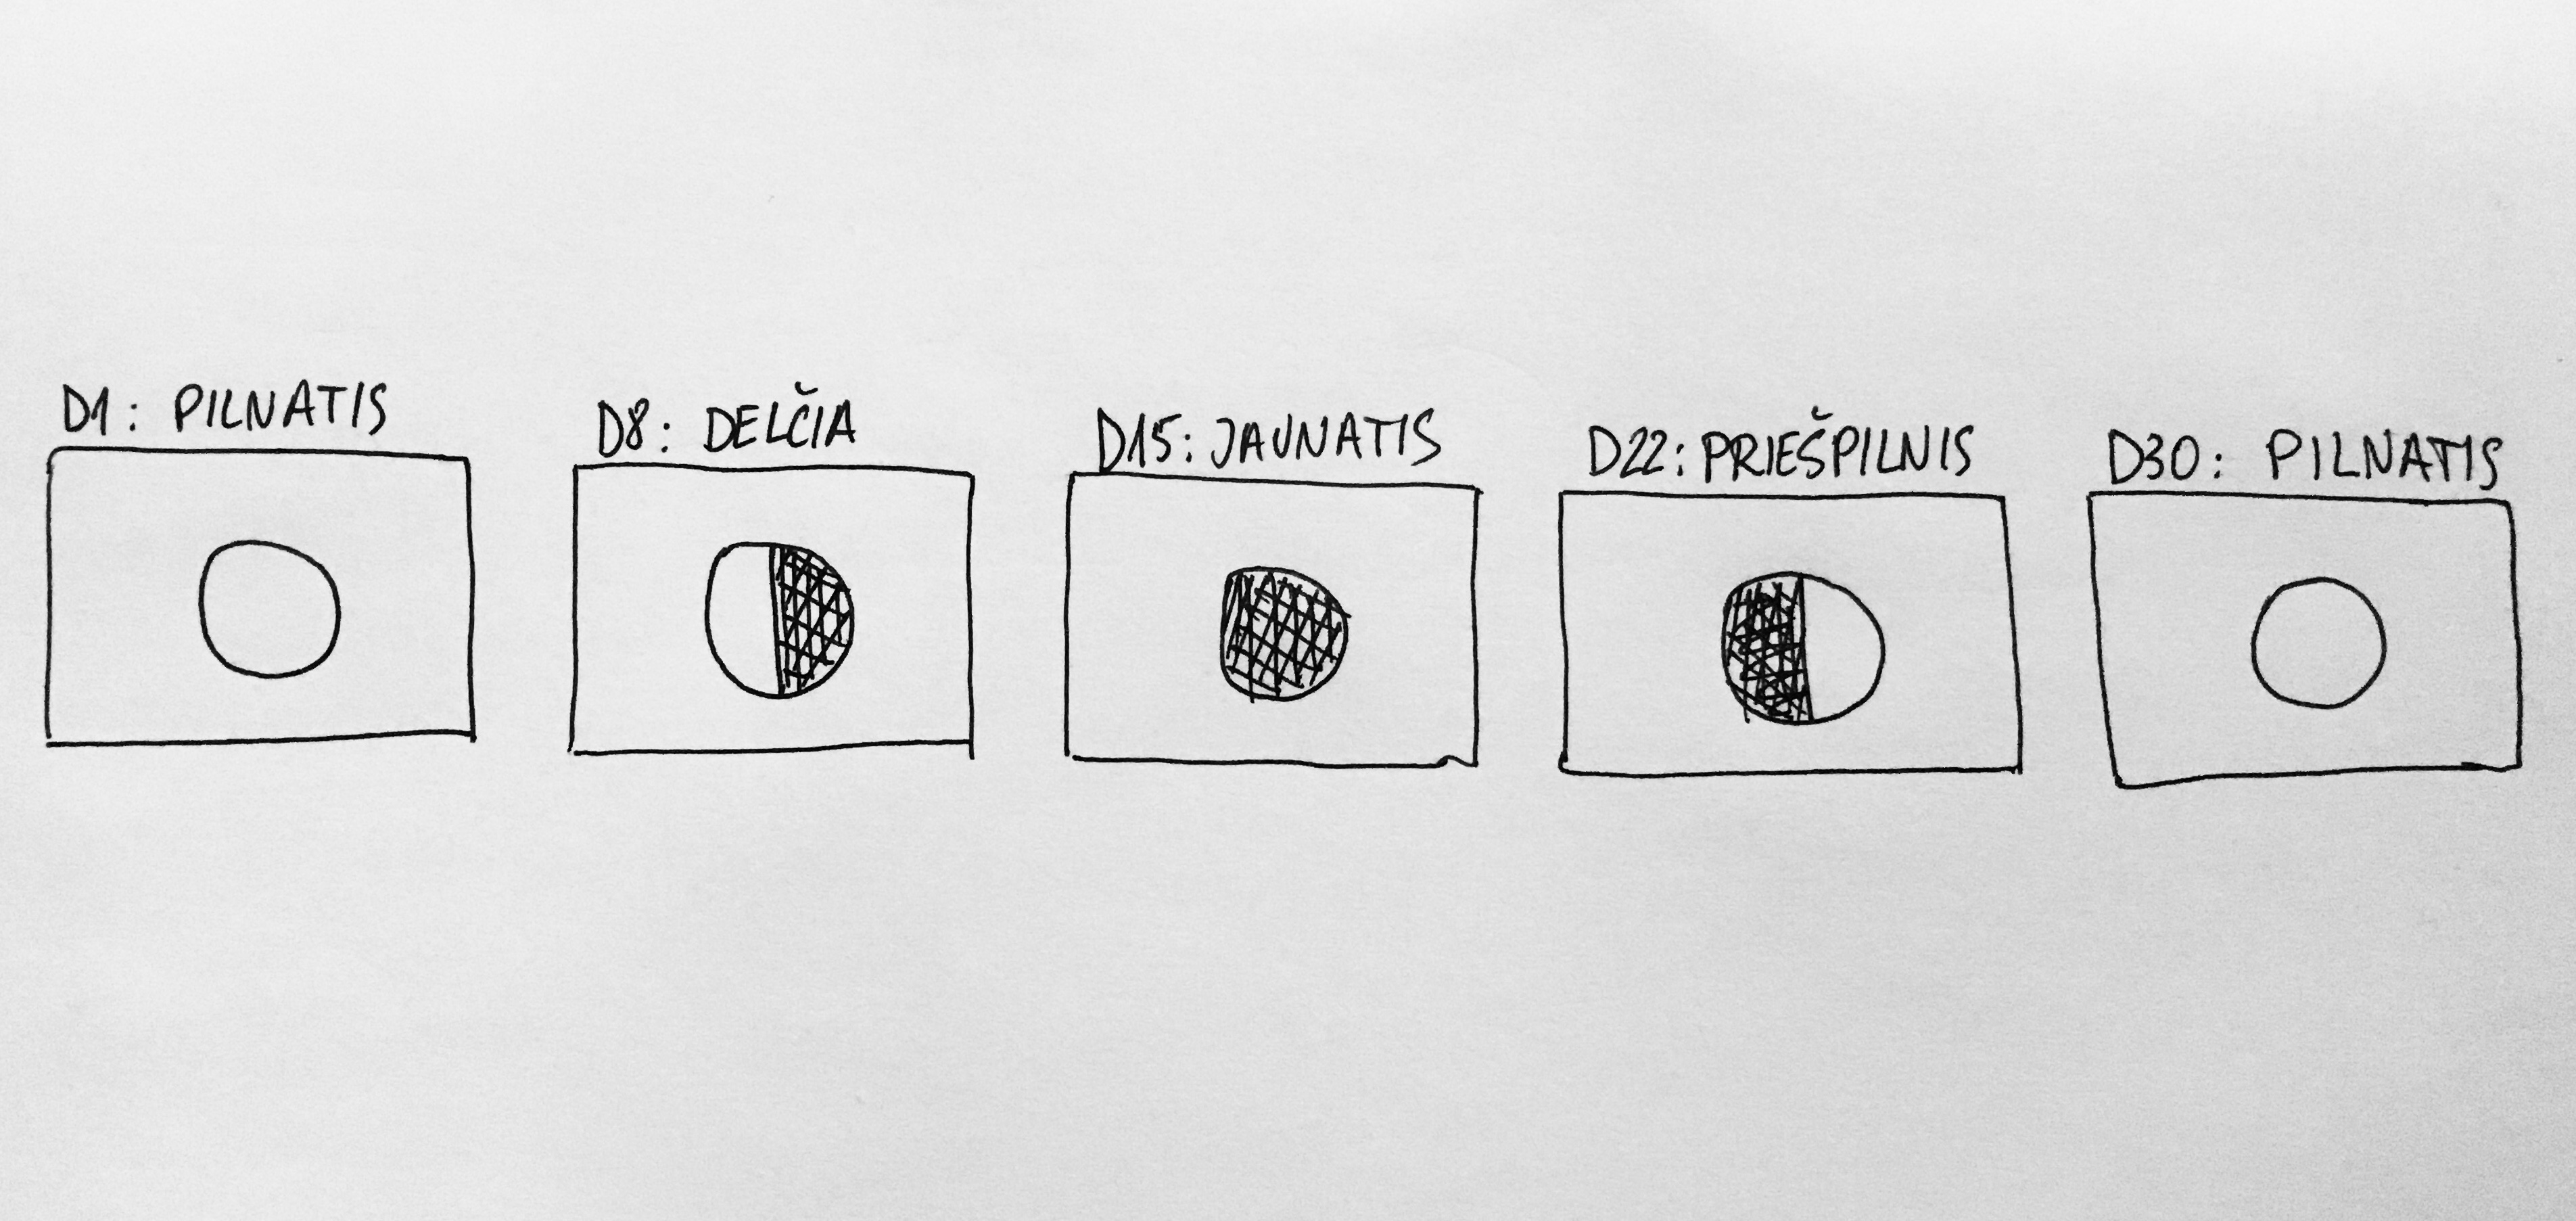 D1: PILNATIS
D8: DELČIA
D15: JAUNATIS
D22: PRIEŠPILNIS
D30: PILNATIS